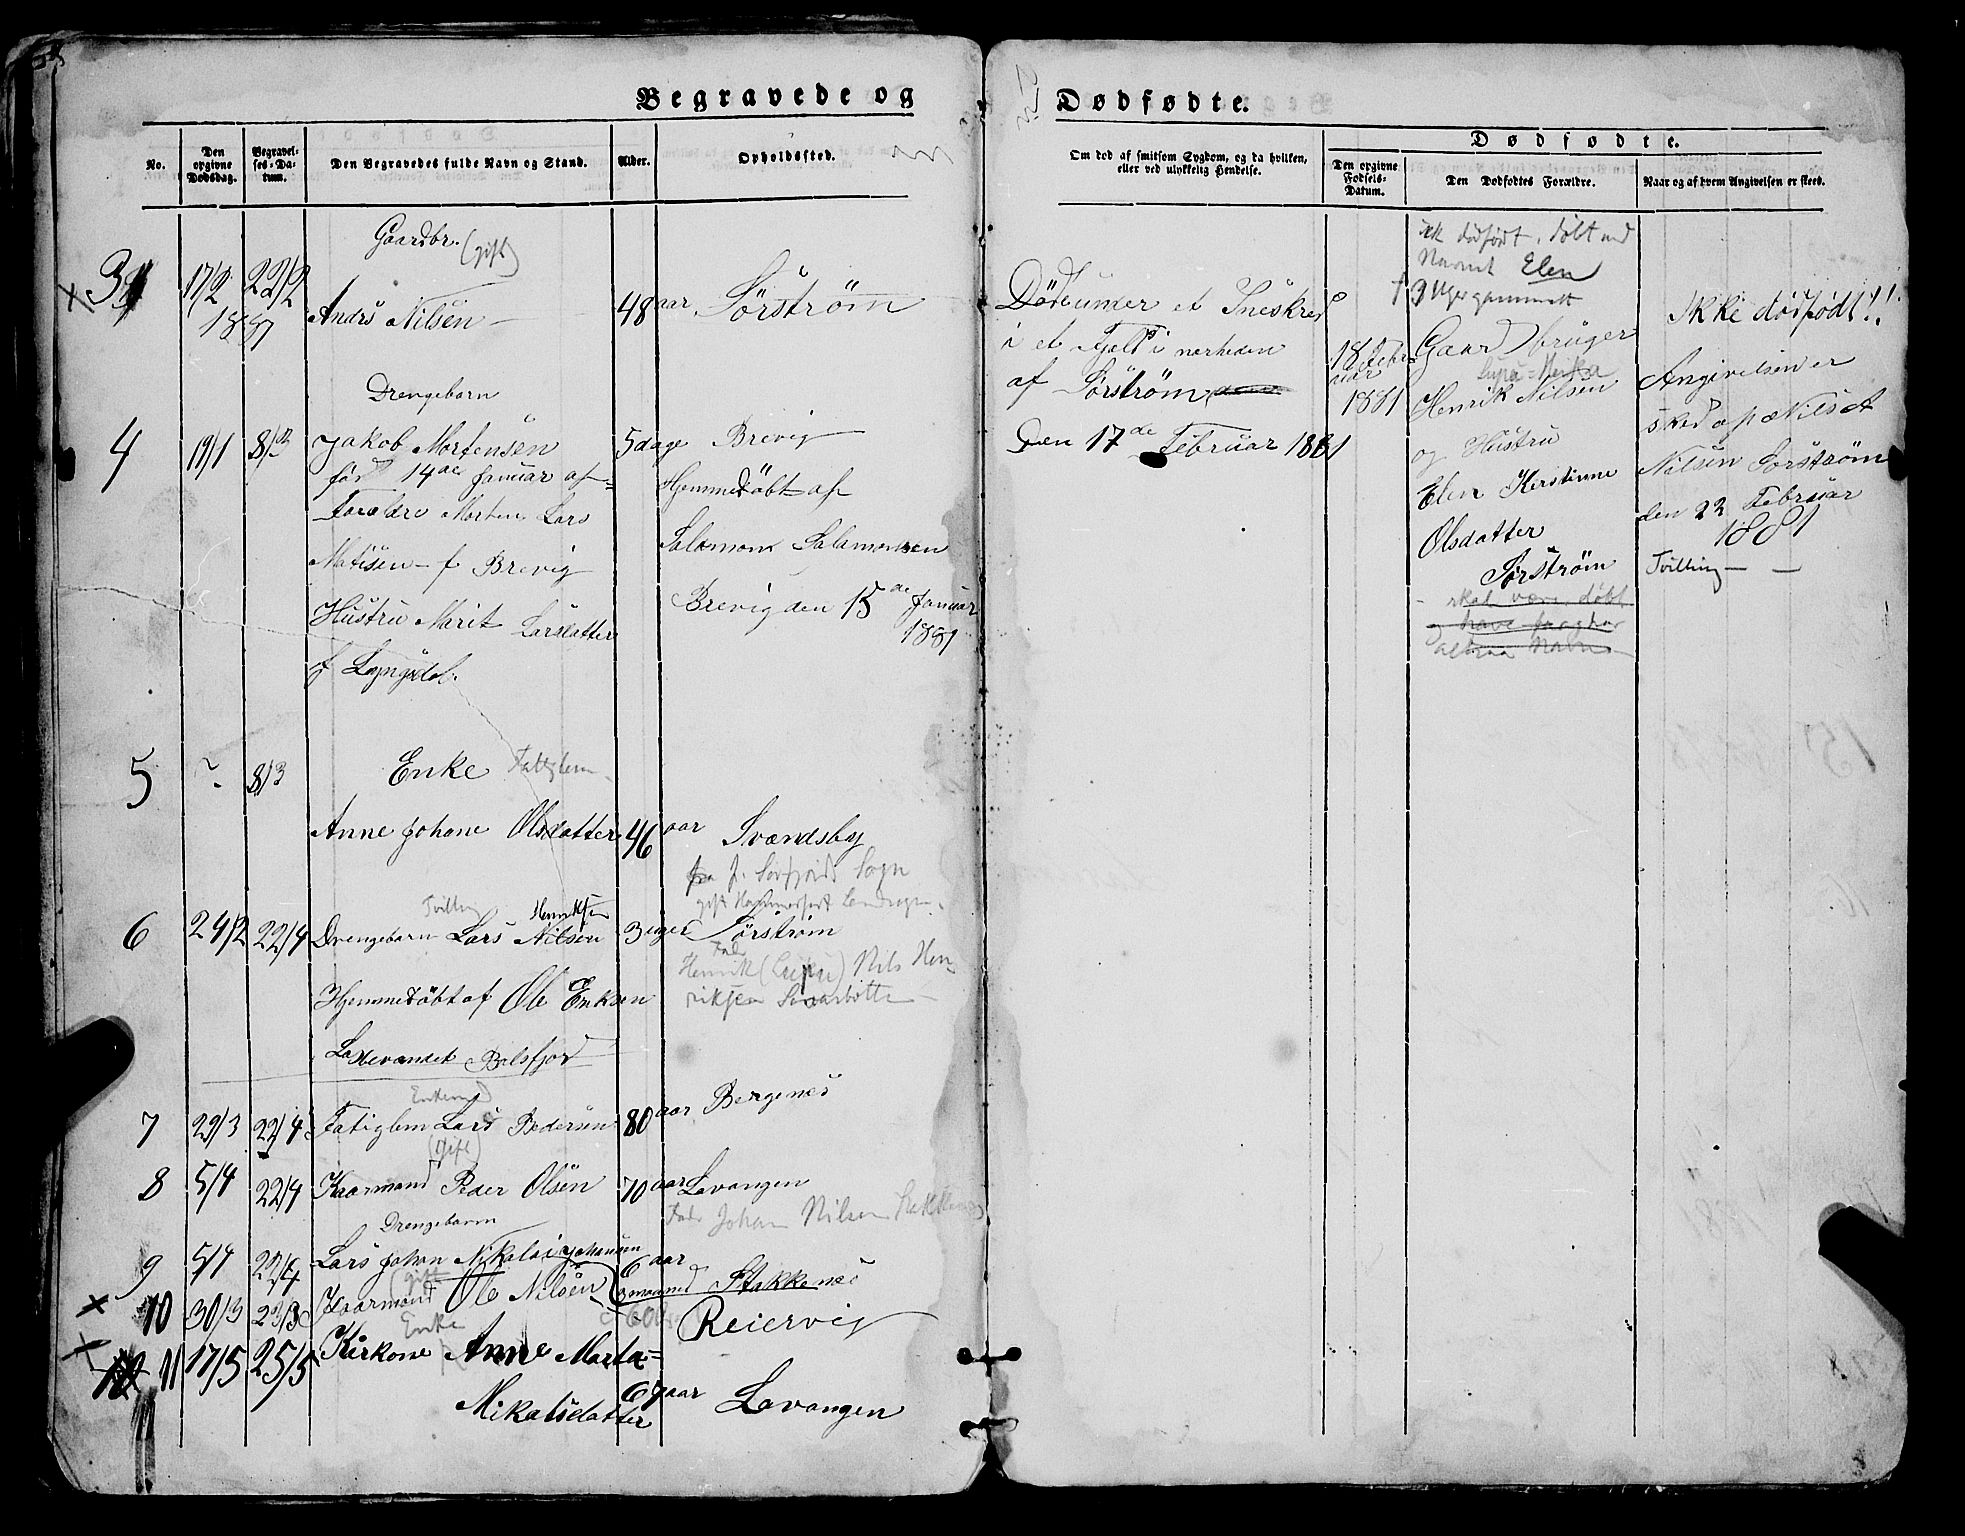 Begravede og
No.
Den opgivne Dødsdag.
Begravelses-Datum.
Den Begravedes fulde Navn og Stand.
Alder.
Opholdssted.
Gaardbr. (gift)
3 17/2 22/2
1881
Anders Nilsen 48 aar Sørstrøm
Drengebarn
4 19/1 8/3 Jakob Mortensen 5 dage Brevig
fød 14de Januar af
Forældre Morten Lars
Matisen f Brevig
Hustru Marit Larsdatter
f Lyngsdal.
Hjemmedøbt af
Salomon Salamonsen
Brevig den 15de Januar
1881
5 ? 8/3 Enke Fattiglem
Anne Johane Olsdatter 46 aar Svændsby
f. Sørfjord Sogn
gift
Tvilling Henriksen
6 24/2 22/4 Drengebarn Lars Nilsen 3 uger Sørstrøm
Hjemmedøbt af Ole Eriksen
Balsfjord
Fader
Henrik Nils Hen
riksen
Enkemand
7 29/3 22/4 Fatiglem Lars Pedersen 80 aar Bergenes
(Gift)
8 5/4 22/4 Kaarmand Peder Olsen 70 aar Lavangen
Drengebarn
Fader Johan Nilsen Stakkenes
9 5/4 22/4 Lars Johan Nikolai Johansen 6 aar
3 maaned Stakkenes
(gift
10 30/3 23/3 Kaarmand Ole Nilsen 60 Reiervig
Enke
11 17/5 25/5 Kirkone Anne Marta
Nikalsdatter 67 aar Lavangen
Dødfødte.
Om død af smitsom Sygdom, og da hvilken,
eller ved ulykkelig Hendelse.
Dødfødte.
Den opgivne Fødsels-Datum.
Den Dødfødtes Forældre.
Naar og af hvem Angivelsen er skeet.
Døde under et Sneskred
i et Fjeld i nærheden
af Sørstrøm
Den 17de Februar 1881
18 Febr
uar
1881
ikk dødfødt, døbt med
Navnet Elen
† 3 Uger gammelt
Gaardbruger
Henrik Nilsen
og Hustru
Elen Kerstinne
Olsdatter
Sørstrøm
skal være døbt
og have
Navn
Ikke dødfødt!!
Angivelsen er
sked a Nils
Nilsen Sørstrøm
den 22 Februar
1881
Tvilling